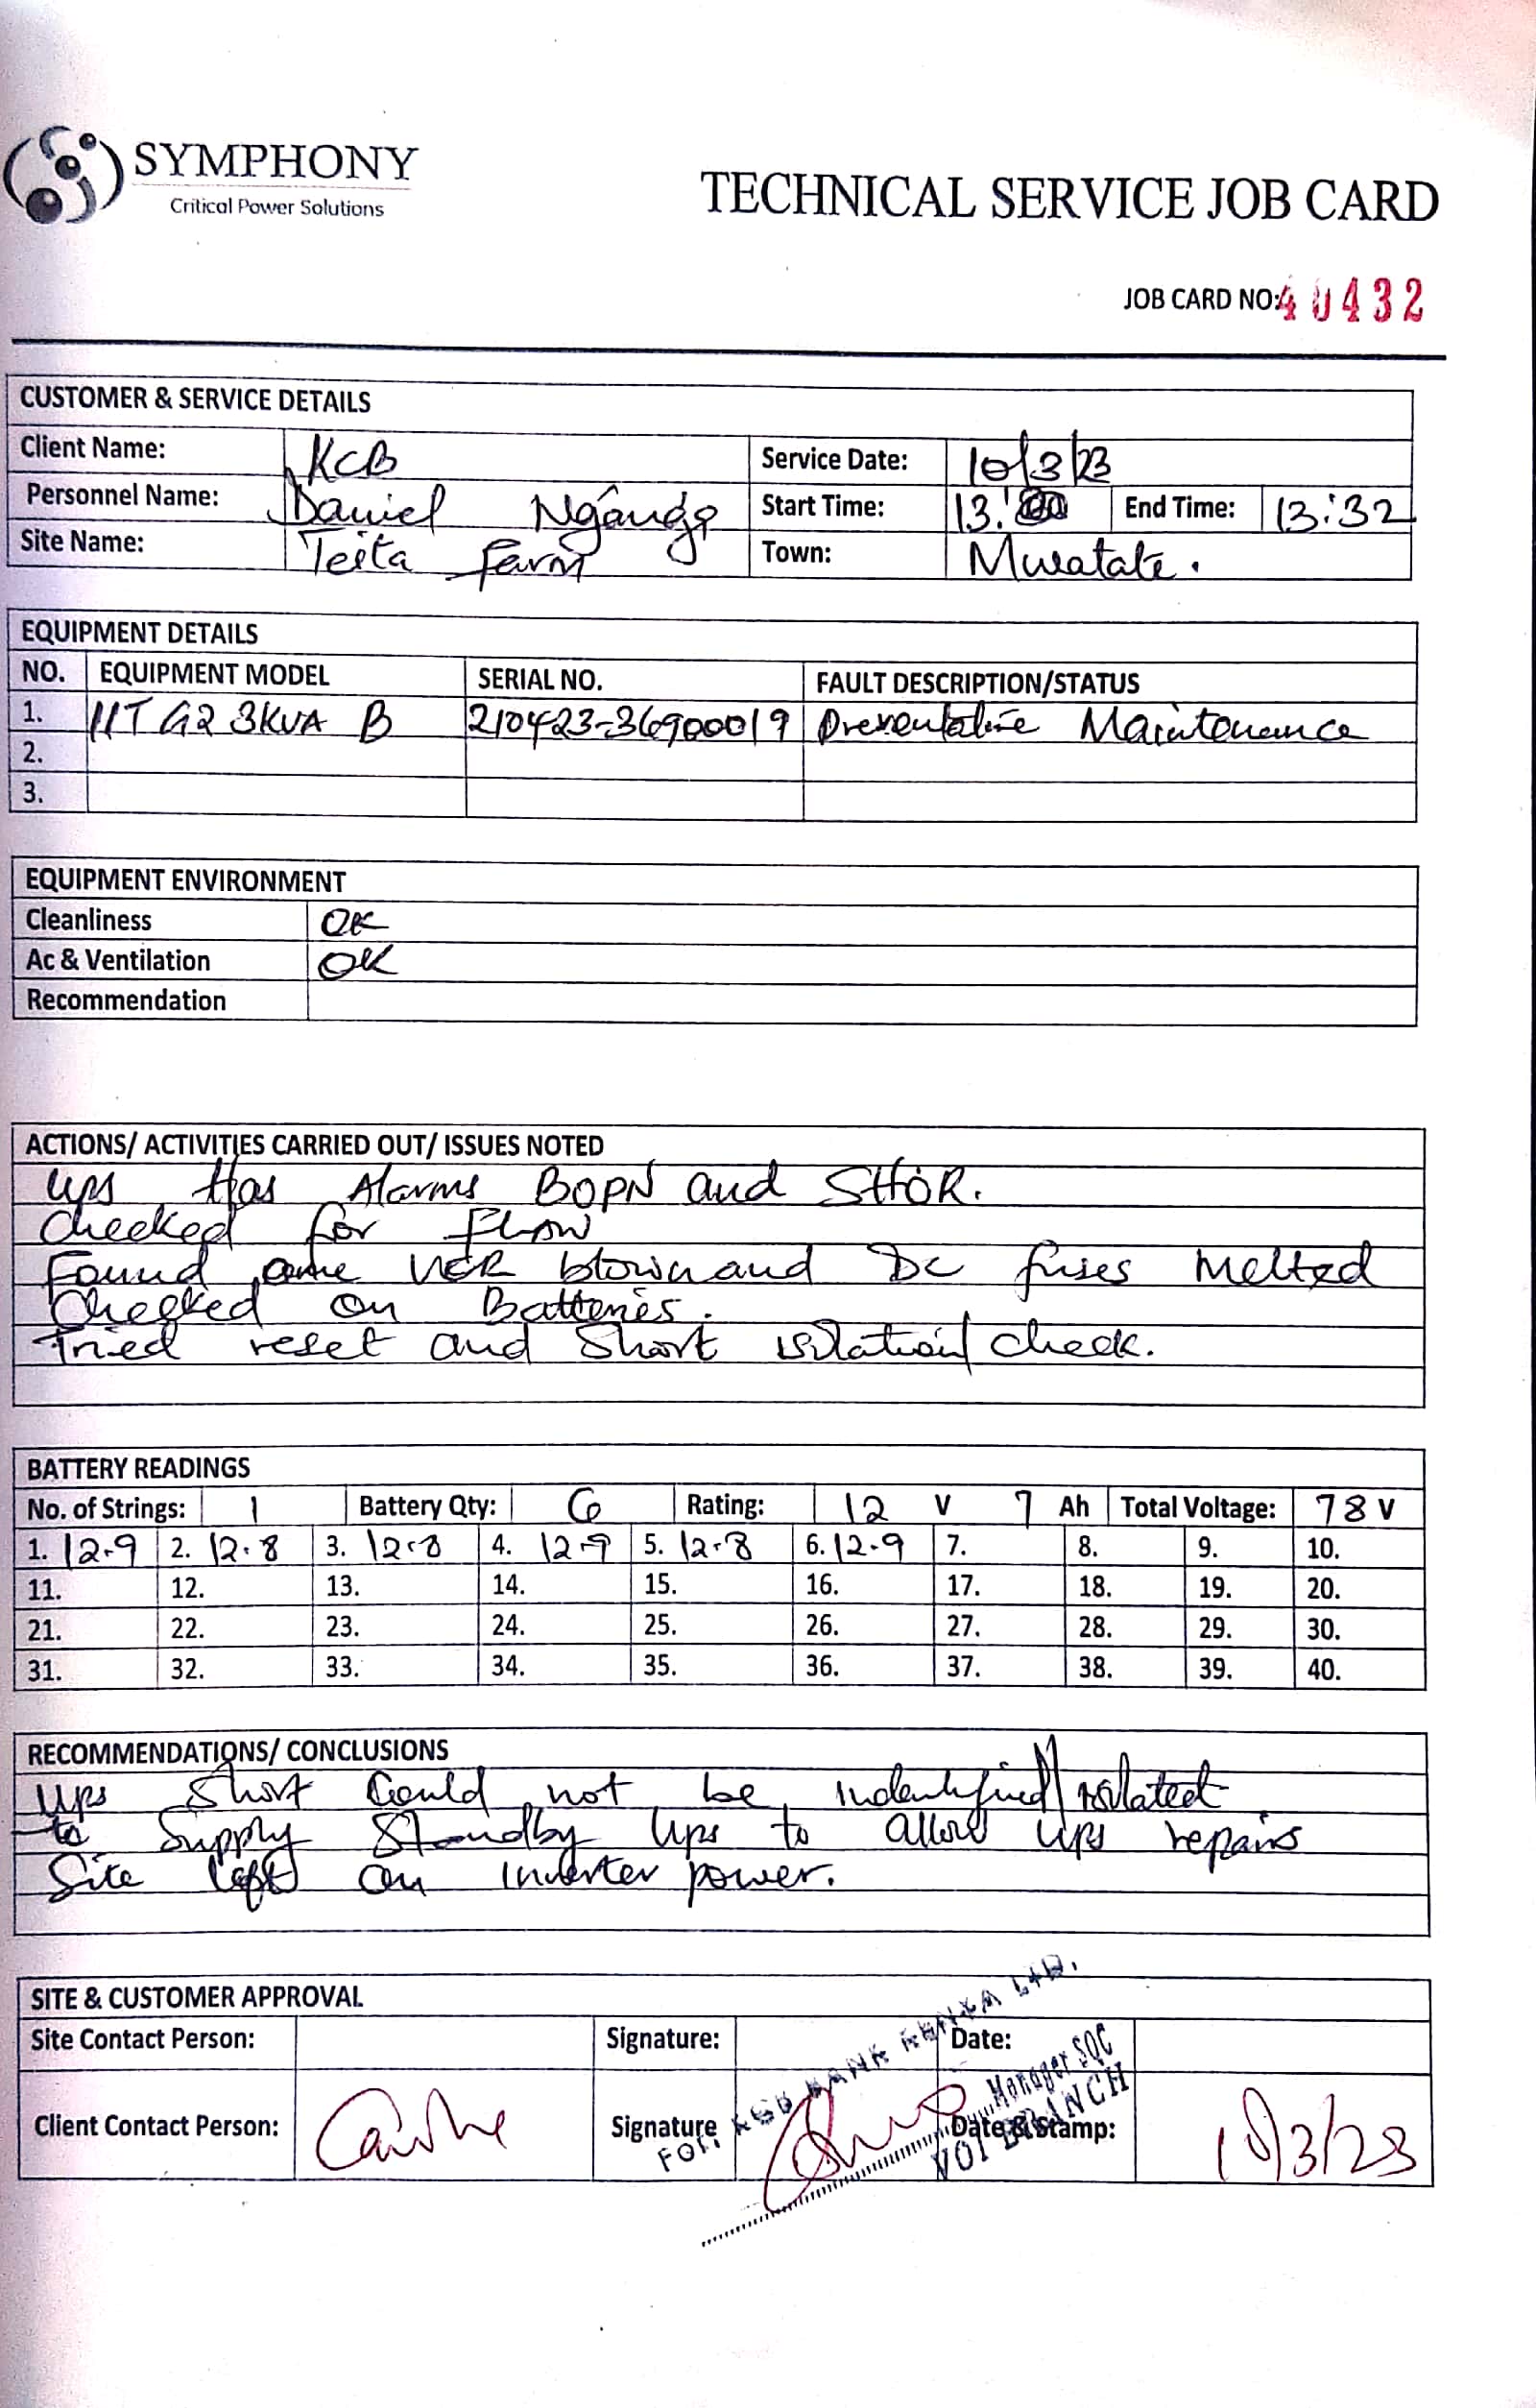 SYMPHONY
Critical Power Solutions
TECHNICAL SERVICE JOB CARD
JOB CARD NO: 40432
CUSTOMER & SERVICE DETAILS
Client Name: KCB Service Date: 10/3/23
Personnel Name: Daniel Start Time: 13: End Time: 13:32
Site Name: Teita Farm Town: Mwatate.
EQUIPMENT DETAILS
NO. EQUIPMENT MODEL SERIAL NO. FAULT DESCRIPTION/STATUS
1. G2 3KVA B 210423-36900019 Preventative Maintenance
2.
3.
EQUIPMENT ENVIRONMENT
Cleanliness OK
Ac & Ventilation OK
Recommendation
ACTIONS/ ACTIVITIES CARRIED OUT/ ISSUES NOTED
Ups Has Alarms BOPN and SHOR.
Checked for
Found one blown and Dc fuses Melted
Checked on Batteries.
Tried reset and Short isolation/check.
BATTERY READINGS
No. of Strings: 1 Battery Qty: 6 Rating: 12 V 7 Ah Total Voltage: 78 V
1. 12.9 2. 12.8 3. 12.8 4. 12.9 5. 12.8 6. 12.9 7. 8. 9. 10.
11. 12. 13. 14. 15. 16. 17. 18. 19. 20.
21. 22. 23. 24. 25. 26. 27. 28. 29. 30.
31. 32. 33. 34. 35. 36. 37. 38. 39. 40.
RECOMMENDATIONS/ CONCLUSIONS
Ups Short Could not be indentified/isolated
to Supply Standby Ups to allow ups repairs
Site left on inverter power.
SITE & CUSTOMER APPROVAL
Site Contact Person: Signature: Date:
Client Contact Person: Signature Date & Stamp: 10/3/23
FOR: KCB BANK KENYA LTD.
Manager SQC
VOI BRANCH